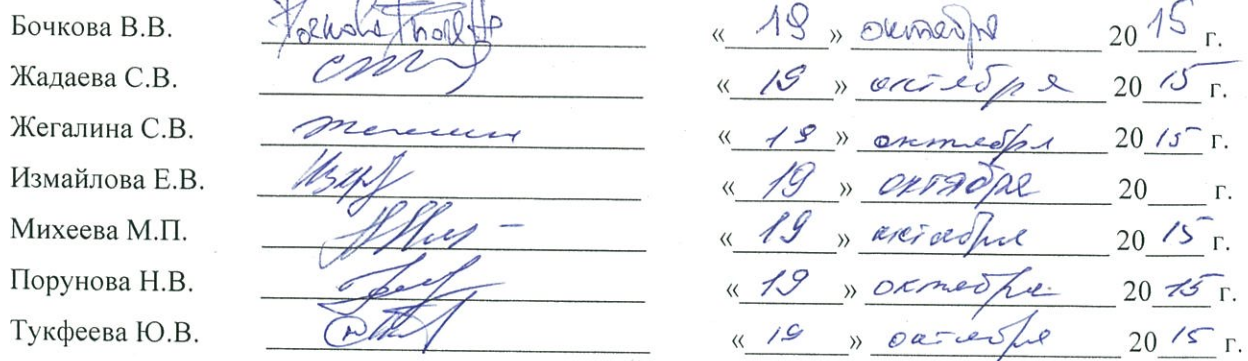 Бочкова В.В. Бочкова « 19 » октября 20 15 г.
Жадаева С.В. « 19 » октября 20 15 г.
Жегалина С.В. « 19 » октября 20 15 г.
Измайлова Е.В. « 19 » октября 20 г.
Михеева М.П. « 19 » октября 20 15 г.
Порунова Н.В. « 19 » октября 20 15 г.
Тукфеева Ю.В. « 19 » октября 20 15 г.